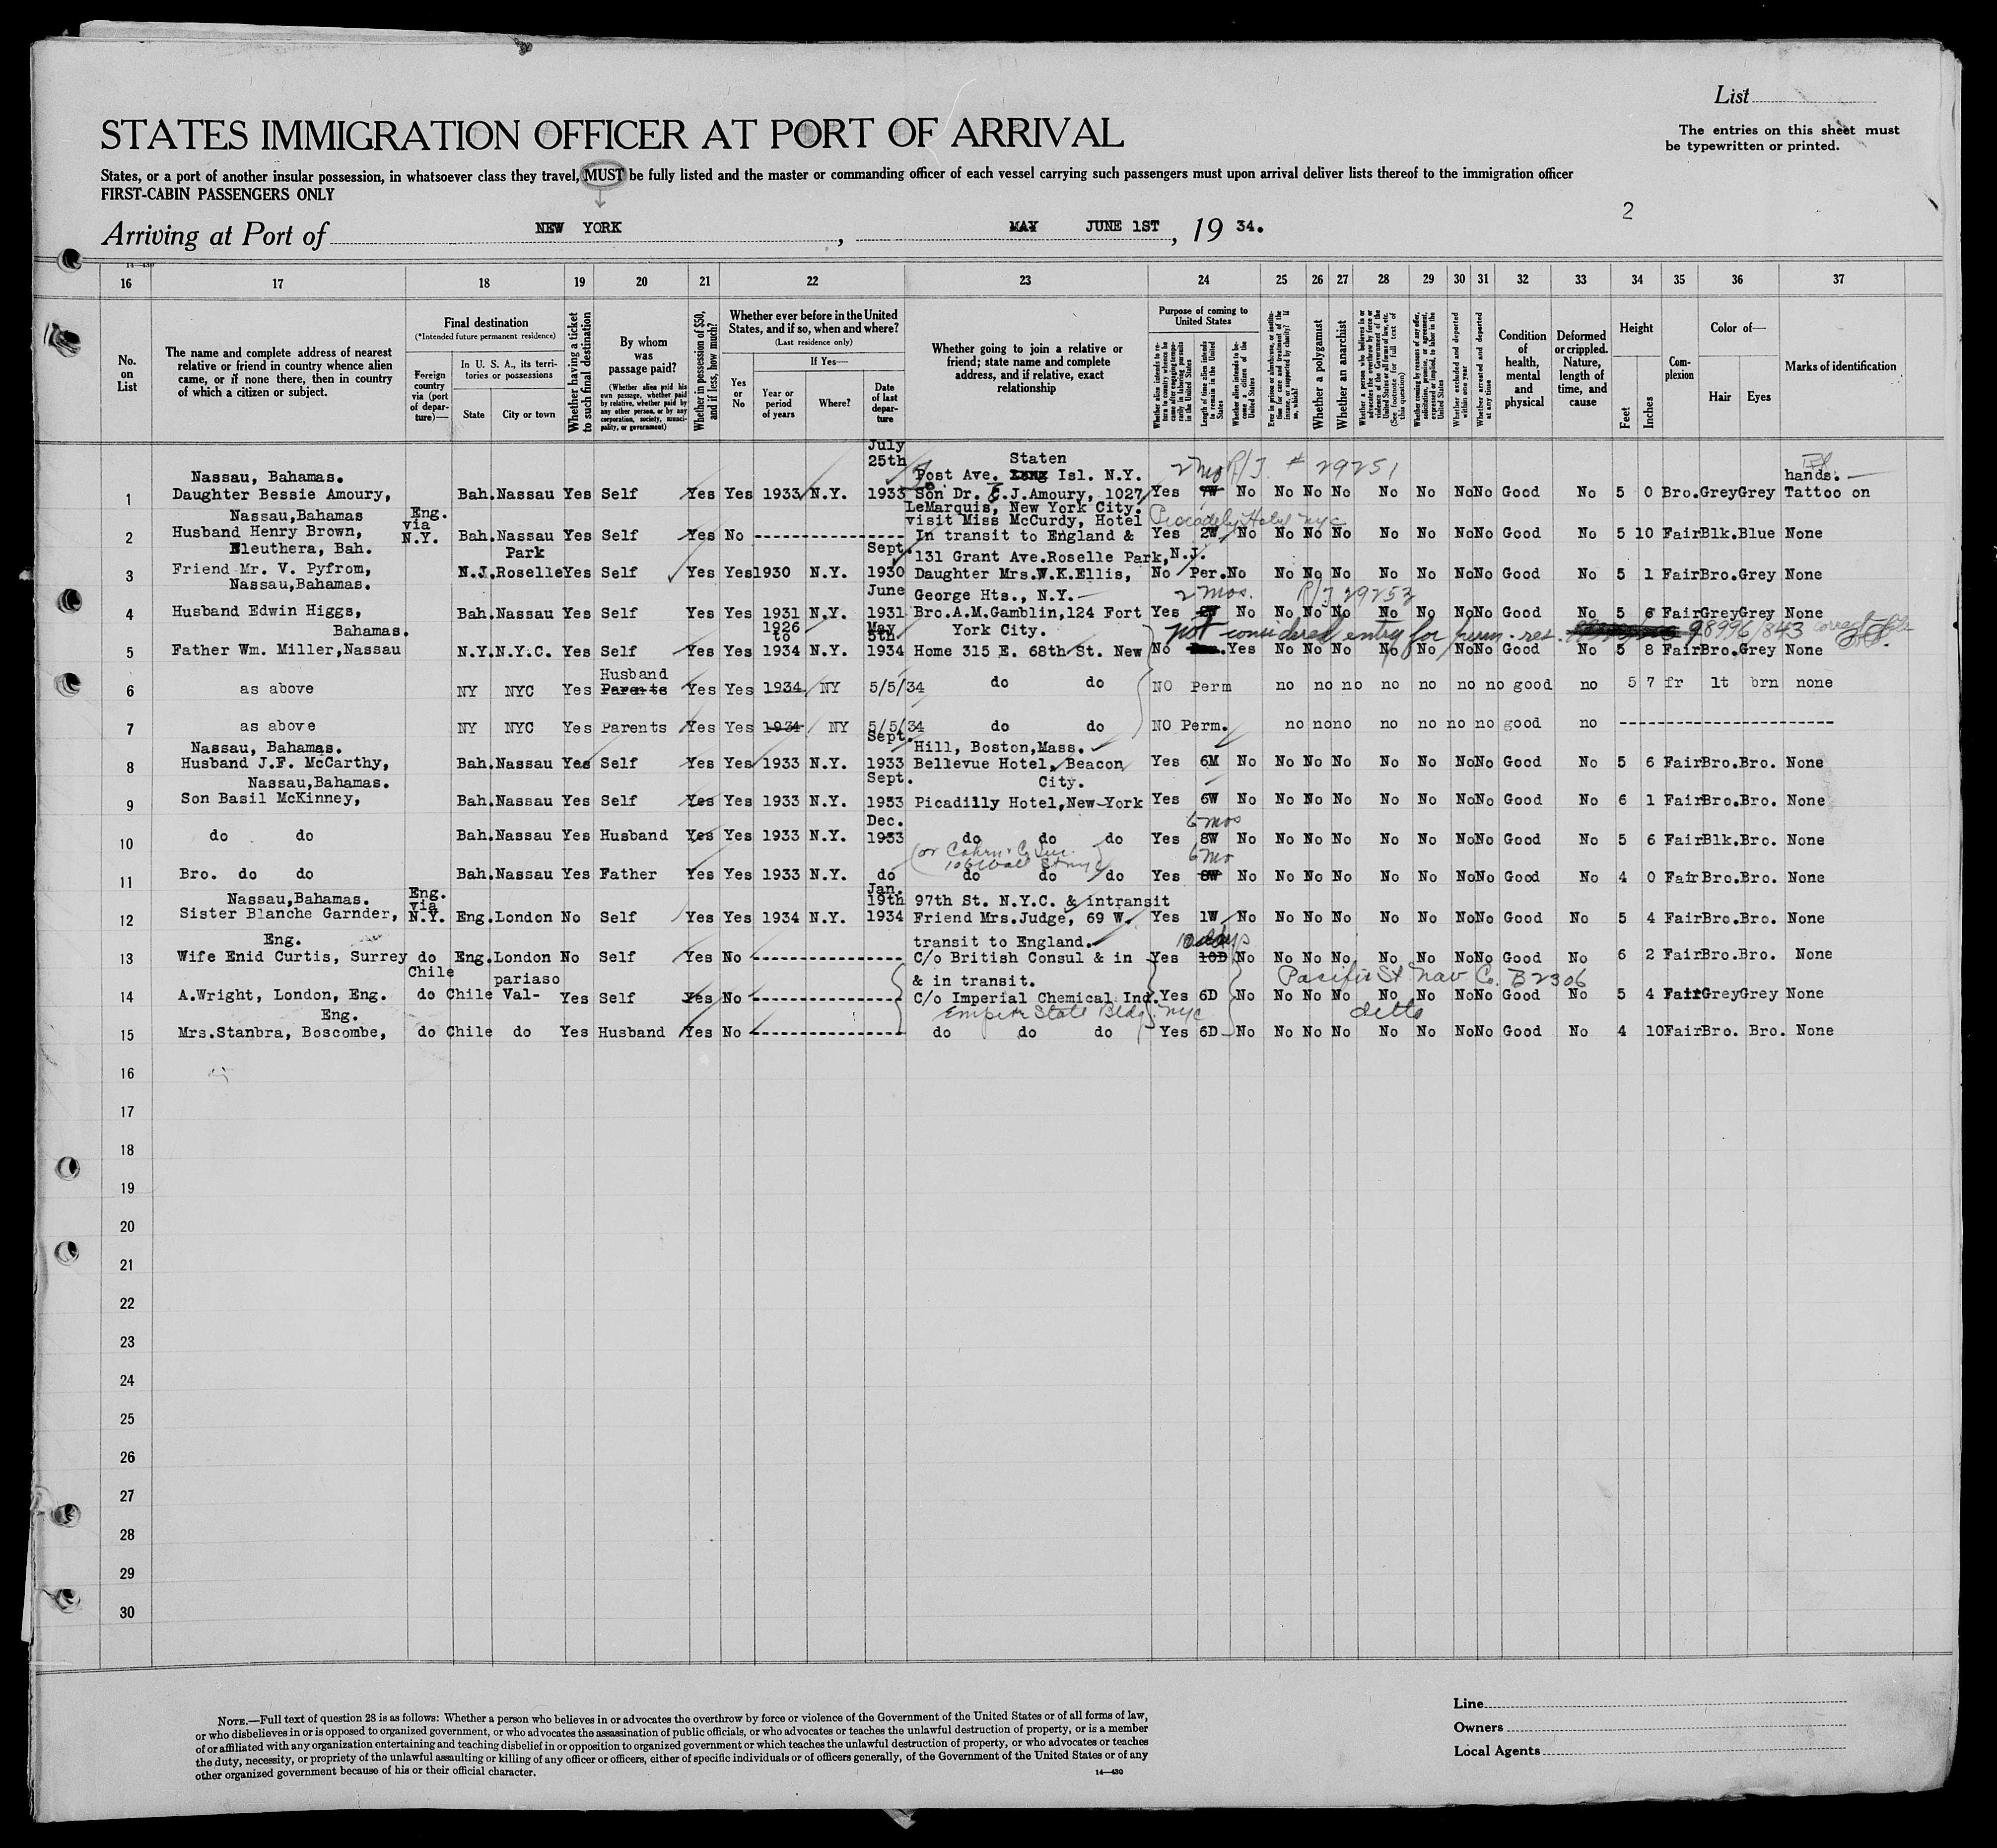 List
STATES IMMIGRATION OFFICER AT PORT OF ARRIVAL
The entries on this sheet must
be typewritten or printed.
States, or a port of another insular possession, in whatsoever class they travel, MUST be fully listed and the master or commanding officer of each vessel carrying such passengers must upon arrival deliver lists thereof to the immigration officer
FIRST-CABIN PASSENGERS ONLY
2
Arriving at Port of NEW YORK, MAY JUNE 1ST, 19 34.
14—430
16 17 18 19 20 21 22 23 24 25 26 27 28 29 30 31 32 33 34 35 36 37
No. on List
The name and complete address of nearest relative or friend in country whence alien came, or if none there, then in country of which a citizen or subject.
Final destination
(*Intended future permanent residence)
Foreign country via (port of departure)—
In U. S. A., its territories or possessions
State City or town
Whether having a ticket to such final destination
By whom was passage paid?
(Whether alien paid his own passage, whether paid by relative, whether paid by any other person, or by any corporation, society, municipality, or government)
Whether in possession of $50, and if less, how much?
Whether ever before in the United States, and if so, when and where?
(Last residence only)
Yes or No
If Yes—
Year or period of years
Where?
Date of last departure
Whether going to join a relative or friend; state name and complete address, and if relative, exact relationship
Purpose of coming to United States
Whether alien intends to return to country whence he came after engaging temporarily in laboring pursuits in the United States
Length of time alien intends to remain in the United States
Whether alien intends to become a citizen of the United States
Ever in prison or almshouse, or institution for care and treatment of the insane, or supported by charity? If so, which?
Whether a polygamist
Whether an anarchist
Whether a person who believes in or advocates the overthrow by force or violence of the Government of the United States or all forms of law, etc. (See footnote for full text of this question)
Whether coming by reason of any offer, solicitation, promise, or agreement, expressed or implied, to labor in the United States
Whether excluded and deported within one year
Whether arrested and deported at any time
Condition of health, mental and physical
Deformed or crippled. Nature, length of time, and cause
Height
Feet Inches
Complexion
Color of—
Hair Eyes
Marks of identification
July
25th Staten
Nassau, Bahamas. Post Ave. Long Isl. N.Y. 2 mo R/J. # 29251 hands.
1 Daughter Bessie Amoury, Bah. Nassau Yes Self Yes Yes 1933 N.Y. 1933 Son Dr. E.J.Amoury, 1027 Yes No No No No No No No No Good No 5 0 Bro. Grey Grey Tattoo on
Nassau,Bahamas Eng. via LeMarquis, New York City.
visit Miss McCurdy, Hotel Piccadely Hotel nyc
2 Husband Henry Brown, N.Y. Bah. Nassau Yes Self Yes No In transit to England & Yes 2W No No No No No No No No Good No 5 10 Fair Blk. Blue None
Eleuthera, Bah. Park Sept. 131 Grant Ave.Roselle Park,N.J.
3 Friend Mr. V. Pyfrom, N.J. Roselle Yes Self Yes Yes 1930 N.Y. 1930 Daughter Mrs.W.K.Ellis, No Per. No No No No No No No No Good No 5 1 Fair Bro. Grey None
Nassau,Bahamas. June George Hts., N.Y. 2 mos. R/J 29253
4 Husband Edwin Higgs, Bah. Nassau Yes Self Yes Yes 1931 N.Y. 1931 Bro.A.M.Gamblin,124 Fort Yes No No No No No No No No Good No 5 6 Fair Grey Grey None
Bahamas. 1926 to May 5th York City. not considered entry for perm. res. 98996/843
5 Father Wm. Miller,Nassau N.Y. N.Y.C. Yes Self Yes Yes 1934 N.Y. 1934 Home 315 E. 68th St. New No Yes No No No No No No No Good No 5 8 Fair Bro. Grey None
Husband
6 as above NY NYC Yes Parents Yes Yes 1934 NY 5/5/34 do do NO Perm no no no no no no no good no 5 7 fr lt brn none
7 as above NY NYC Yes Parents Yes Yes 1934 NY 5/5/34 do do NO Perm. no no no no no no no good no
Nassau, Bahamas. Sept. Hill, Boston,Mass.
8 Husband J.F. McCarthy, Bah. Nassau Yes Self Yes Yes 1933 N.Y. 1933 Bellevue Hotel, Beacon Yes 6M No No No No No No No No Good No 5 6 Fair Bro. Bro. None
Nassau,Bahamas. Sept. City.
9 Son Basil McKinney, Bah. Nassau Yes Self Yes Yes 1933 N.Y. 1933 Picadilly Hotel,New-York Yes 6W No No No No No No No No Good No 6 1 Fair Bro. Bro. None
Dec. 6 mos
10 do do Bah. Nassau Yes Husband Yes Yes 1933 N.Y. 1933 do do do Yes 8W No No No No No No No No Good No 5 6 Fair Blk. Bro. None
106 Wall St nyc 6 mo
11 Bro. do do Bah. Nassau Yes Father Yes Yes 1933 N.Y. do do do do Yes 8W No No No No No No No No Good No 4 0 Fair Bro. Bro. None
Nassau,Bahamas. Eng. via Jan. 19th 97th St. N.Y.C. & intransit
12 Sister Blanche Garnder, N.Y. Eng. London No Self Yes Yes 1934 N.Y. 1934 Friend Mrs.Judge, 69 W. Yes 1W No No No No No No No No Good No 5 4 Fair Bro. Bro. None
Eng. transit to England. 10 days
13 Wife Enid Curtis, Surrey do Eng. London No Self Yes No C/o British Consul & in Yes 10D No No No No No No No No Good No 6 2 Fair Bro. Bro. None
Chile pariaso & in transit. Pacific St Nav Co. B2306
14 A.Wright, London, Eng. do Chile Val- Yes Self Yes No C/o Imperial Chemical Ind. Yes 6D No No No No No No No No Good No 5 4 Fair Grey Grey None
Eng. Empire State Bldg. nyc ditto
15 Mrs.Stanbra, Boscombe, do Chile do Yes Husband Yes No do do do Yes 6D No No No No No No No No Good No 4 10 Fair Bro. Bro. None
16
17
18
19
20
21
22
23
24
25
26
27
28
29
30
NOTE.—Full text of question 28 is as follows: Whether a person who believes in or advocates the overthrow by force or violence of the Government of the United States or of all forms of law,
or who disbelieves in or is opposed to organized government, or who advocates the assassination of public officials, or who advocates or teaches the unlawful destruction of property, or is a member
of or affiliated with any organization entertaining and teaching disbelief in or opposition to organized government or which teaches the unlawful destruction of property, or who advocates or teaches
the duty, necessity, or propriety of the unlawful assaulting or killing of any officer or officers, either of specific individuals or of officers generally, of the Government of the United States or of any
other organized government because of his or their official character.
14—430
Line
Owners
Local Agents